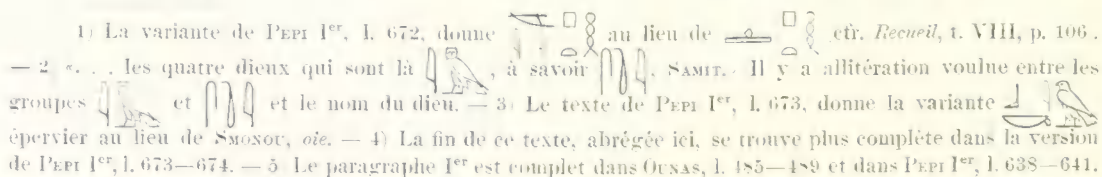 1) La variante de PEPI Iᵉʳ, l. 672, donne au lieu de cfr. Recueil, t. VIII, p. 106.
— 2 «. . . les quatre dieux qui sont là , à savoir , SAMIT. Il y a allitération voulue entre les
groupes et et le nom du dieu. — 3) Le texte de PEPI Iᵉʳ, l. 673, donne la variante
épervier au lieu de SMONOU, oie. — 4) La fin de ce texte, abrégée ici, se trouve plus complète dans la version
de PEPI Iᵉʳ, l. 673—674. — 5 Le paragraphe Iᵉʳ est complet dans OUNAS, l. 485—489 et dans PEPI Iᵉʳ, l. 638—641.